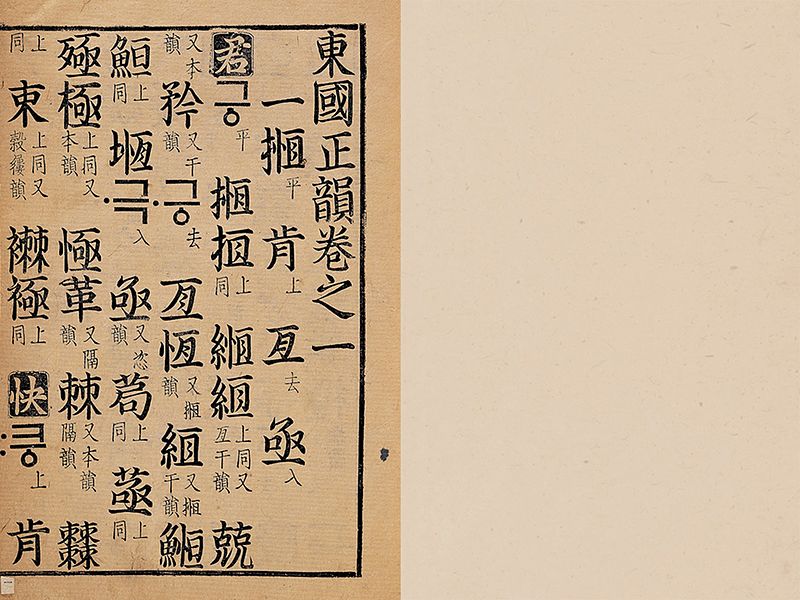 東國正韻卷之一
一搄平 肯上 亙去 亟入
君그ᇰ平 搄揯上同 緪縆上同又亙干韻 兢
又本韻 矜又干韻 ·그ᇰ去 亙恆又搄韻 縆又搄干韻 䱍
上同 堩 ·극入 亟又恣韻 茍上同 上同
殛極上同又本韻 革又隔韻 棘又本韻隔韻
上同 上同又韻 襋上同 快 :크ᇰ上 肯